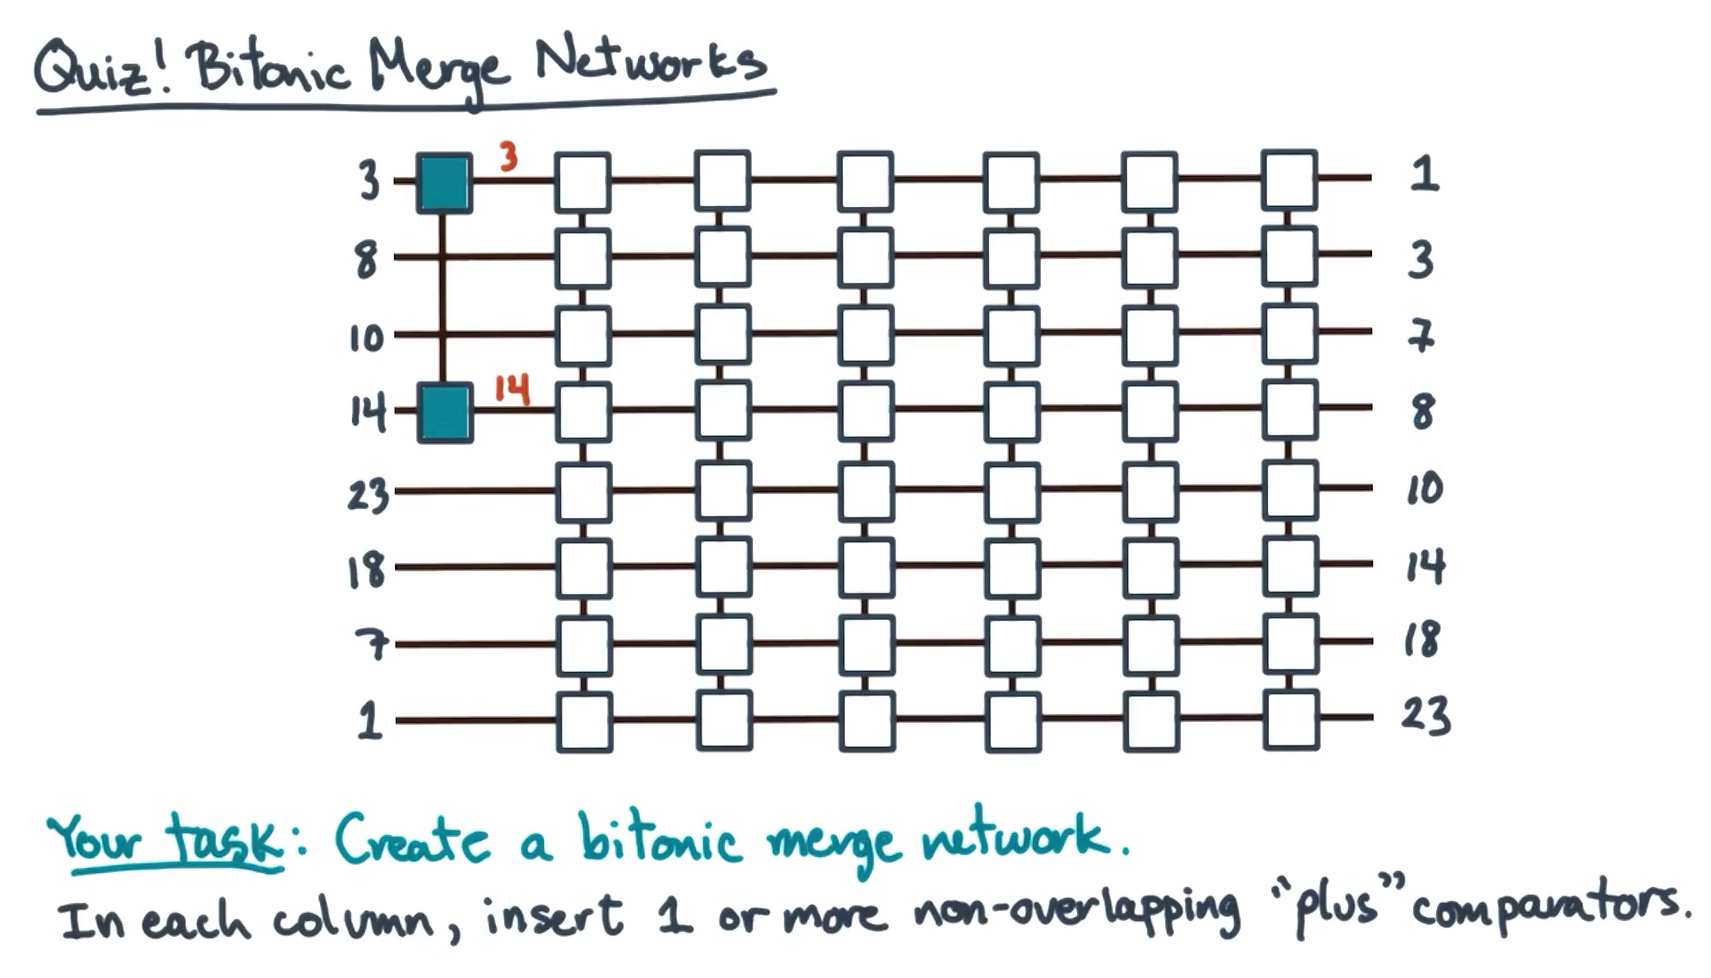 Quiz! Bitonic Merge Networks
3 3 1
8 3
10 7
14 14 8
23 10
18 14
7 18
1 23
Your task: Create a bitonic merge network.
In each column, insert 1 or more non-overlapping "plus" comparators.